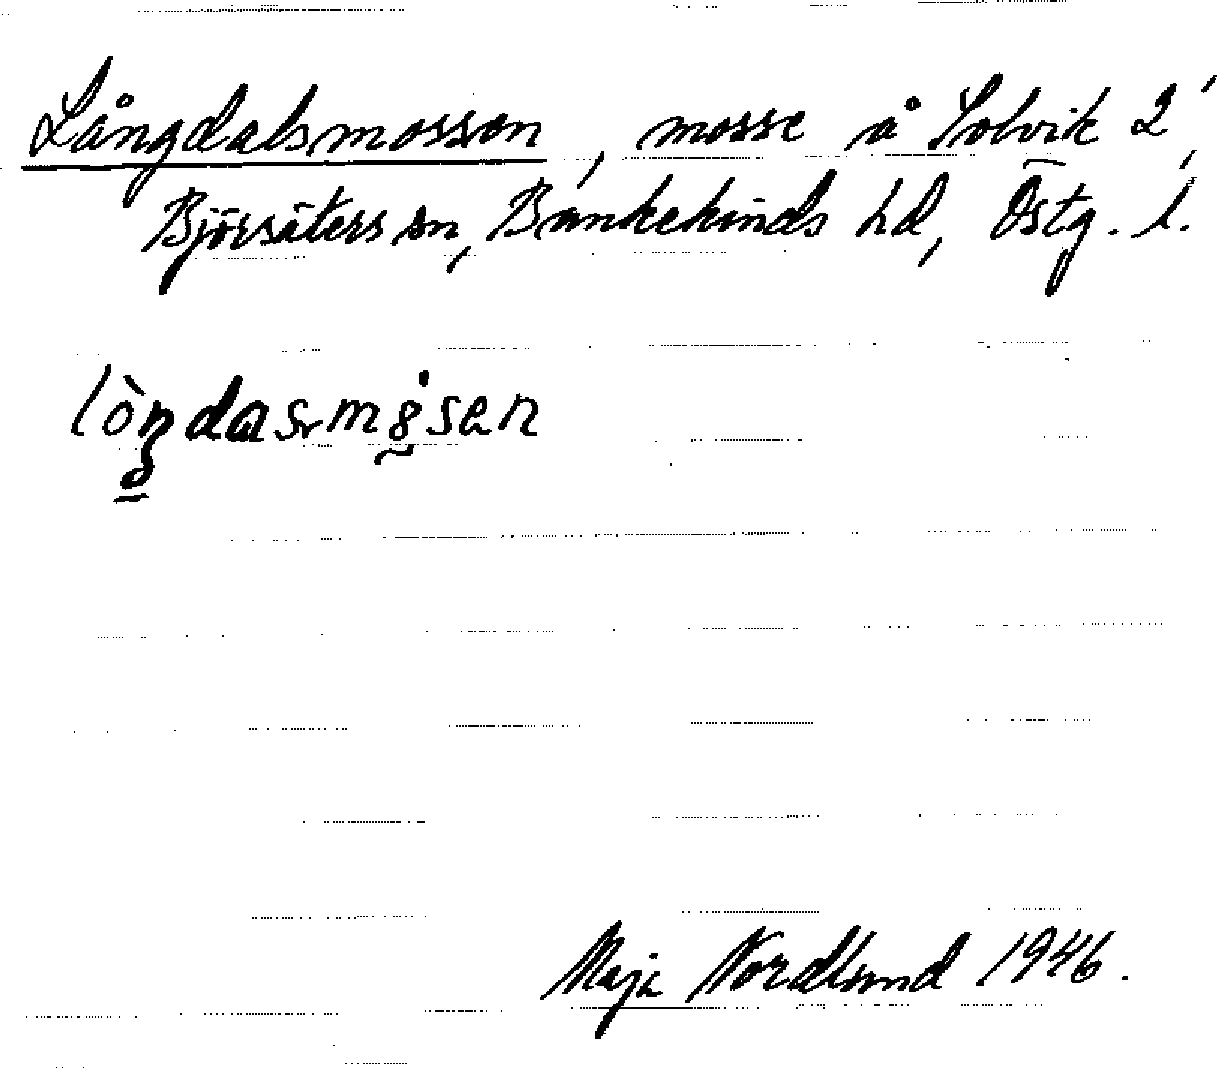 Långdalsmossen, mosse å Solvik 2^1
Björsäters sn, Bankekinds hd, Östg. l.
lòŋdasmåsen
Maja Nordlund 1946.